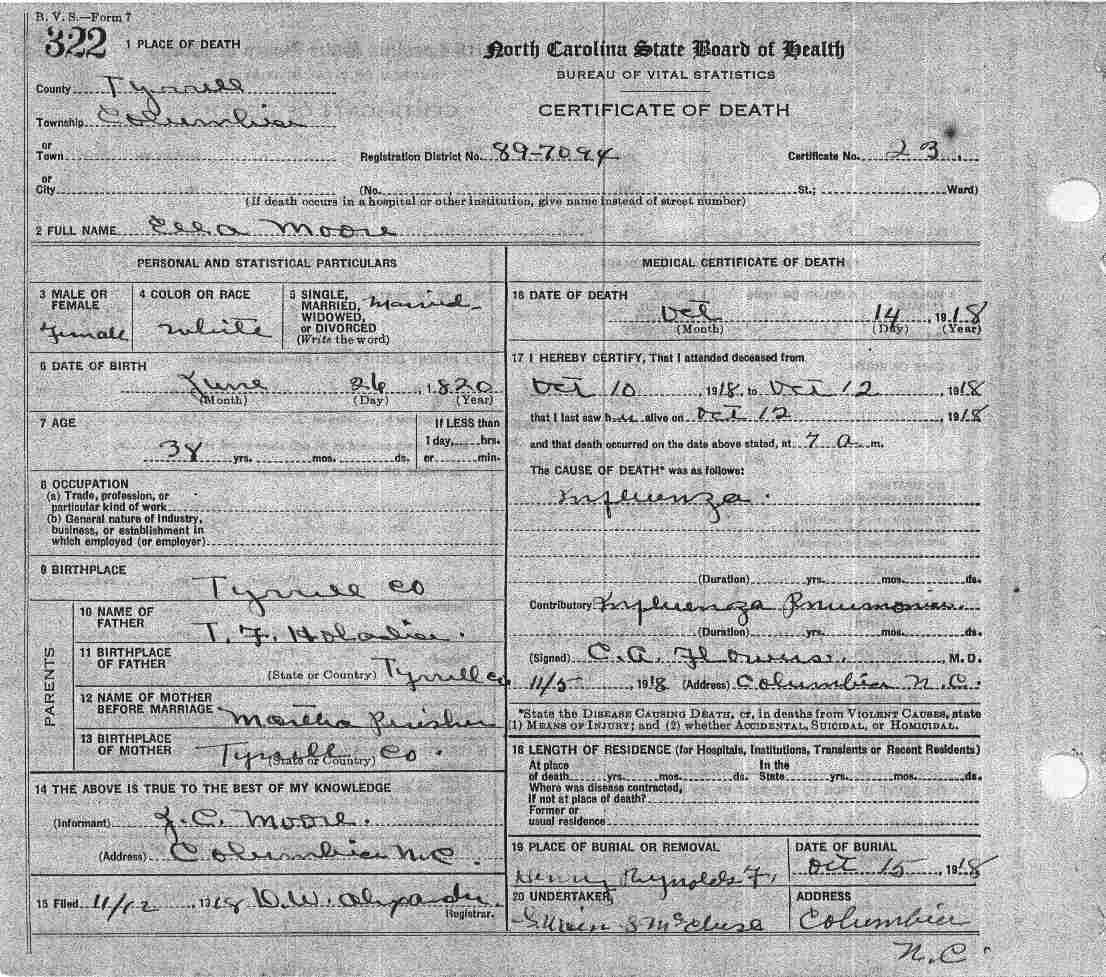 B. V. S.—Form 7
322
1 PLACE OF DEATH
North Carolina State Board of Health
BUREAU OF VITAL STATISTICS
CERTIFICATE OF DEATH
County Tyrrell
Township Columbia
or
Town
Registration District No. 89-7094 Certificate No. 23.
or
City (No. St.; Ward)
(If death occurs in a hospital or other institution, give name instead of street number)
2 FULL NAME Ella Moore
PERSONAL AND STATISTICAL PARTICULARS
3 MALE OR FEMALE
Female
4 COLOR OR RACE
White
5 SINGLE, MARRIED, WIDOWED, or DIVORCED (Write the word)
Married
6 DATE OF BIRTH
June 26, 1820
(Month) (Day) (Year)
7 AGE
If LESS than
1 day, hrs.
38 yrs. mos. ds. or min.
8 OCCUPATION
(a) Trade, profession, or
particular kind of work
(b) General nature of industry,
business, or establishment in
which employed (or employer)
9 BIRTHPLACE
Tyrrell Co
PARENTS
10 NAME OF FATHER
T. F.
11 BIRTHPLACE OF FATHER
(State or Country) Tyrrell Co
12 NAME OF MOTHER BEFORE MARRIAGE
Martha
13 BIRTHPLACE OF MOTHER
(State or Country) Tyrrell Co.
14 THE ABOVE IS TRUE TO THE BEST OF MY KNOWLEDGE
(Informant) J. C. Moore.
(Address) Columbia N C.
15 Filed 11/12, 1918 D. W.
Registrar.
MEDICAL CERTIFICATE OF DEATH
16 DATE OF DEATH
Oct 14, 1918
(Month) (Day) (Year)
17 I HEREBY CERTIFY, That I attended deceased from
Oct 10, 1918, to Oct 12, 1918
that I last saw her alive on Oct 12, 1918
and that death occurred on the date above stated, at 7 a m.
The CAUSE OF DEATH* was as follows:
Influenza.
(Duration) yrs. mos. ds.
Contributory Influenza Pneumonia.
(Duration) yrs. mos. ds.
(Signed) C. A. Flowers, M. D.
11/5, 1918 (Address) Columbia N. C.
*State the DISEASE CAUSING DEATH, or, in deaths from VIOLENT CAUSES, state
(1) MEANS OF INJURY; and (2) whether ACCIDENTAL, SUICIDAL, or HOMICIDAL.
18 LENGTH OF RESIDENCE (for Hospitals, Institutions, Transients or Recent Residents)
At place In the
of death yrs. mos. ds. State yrs. mos. ds.
Where was disease contracted,
If not at place of death?
Former or
usual residence
19 PLACE OF BURIAL OR REMOVAL
Henry Reynolds F.
DATE OF BURIAL
Oct 15, 1918
20 UNDERTAKER
ADDRESS
Columbia
N. C.